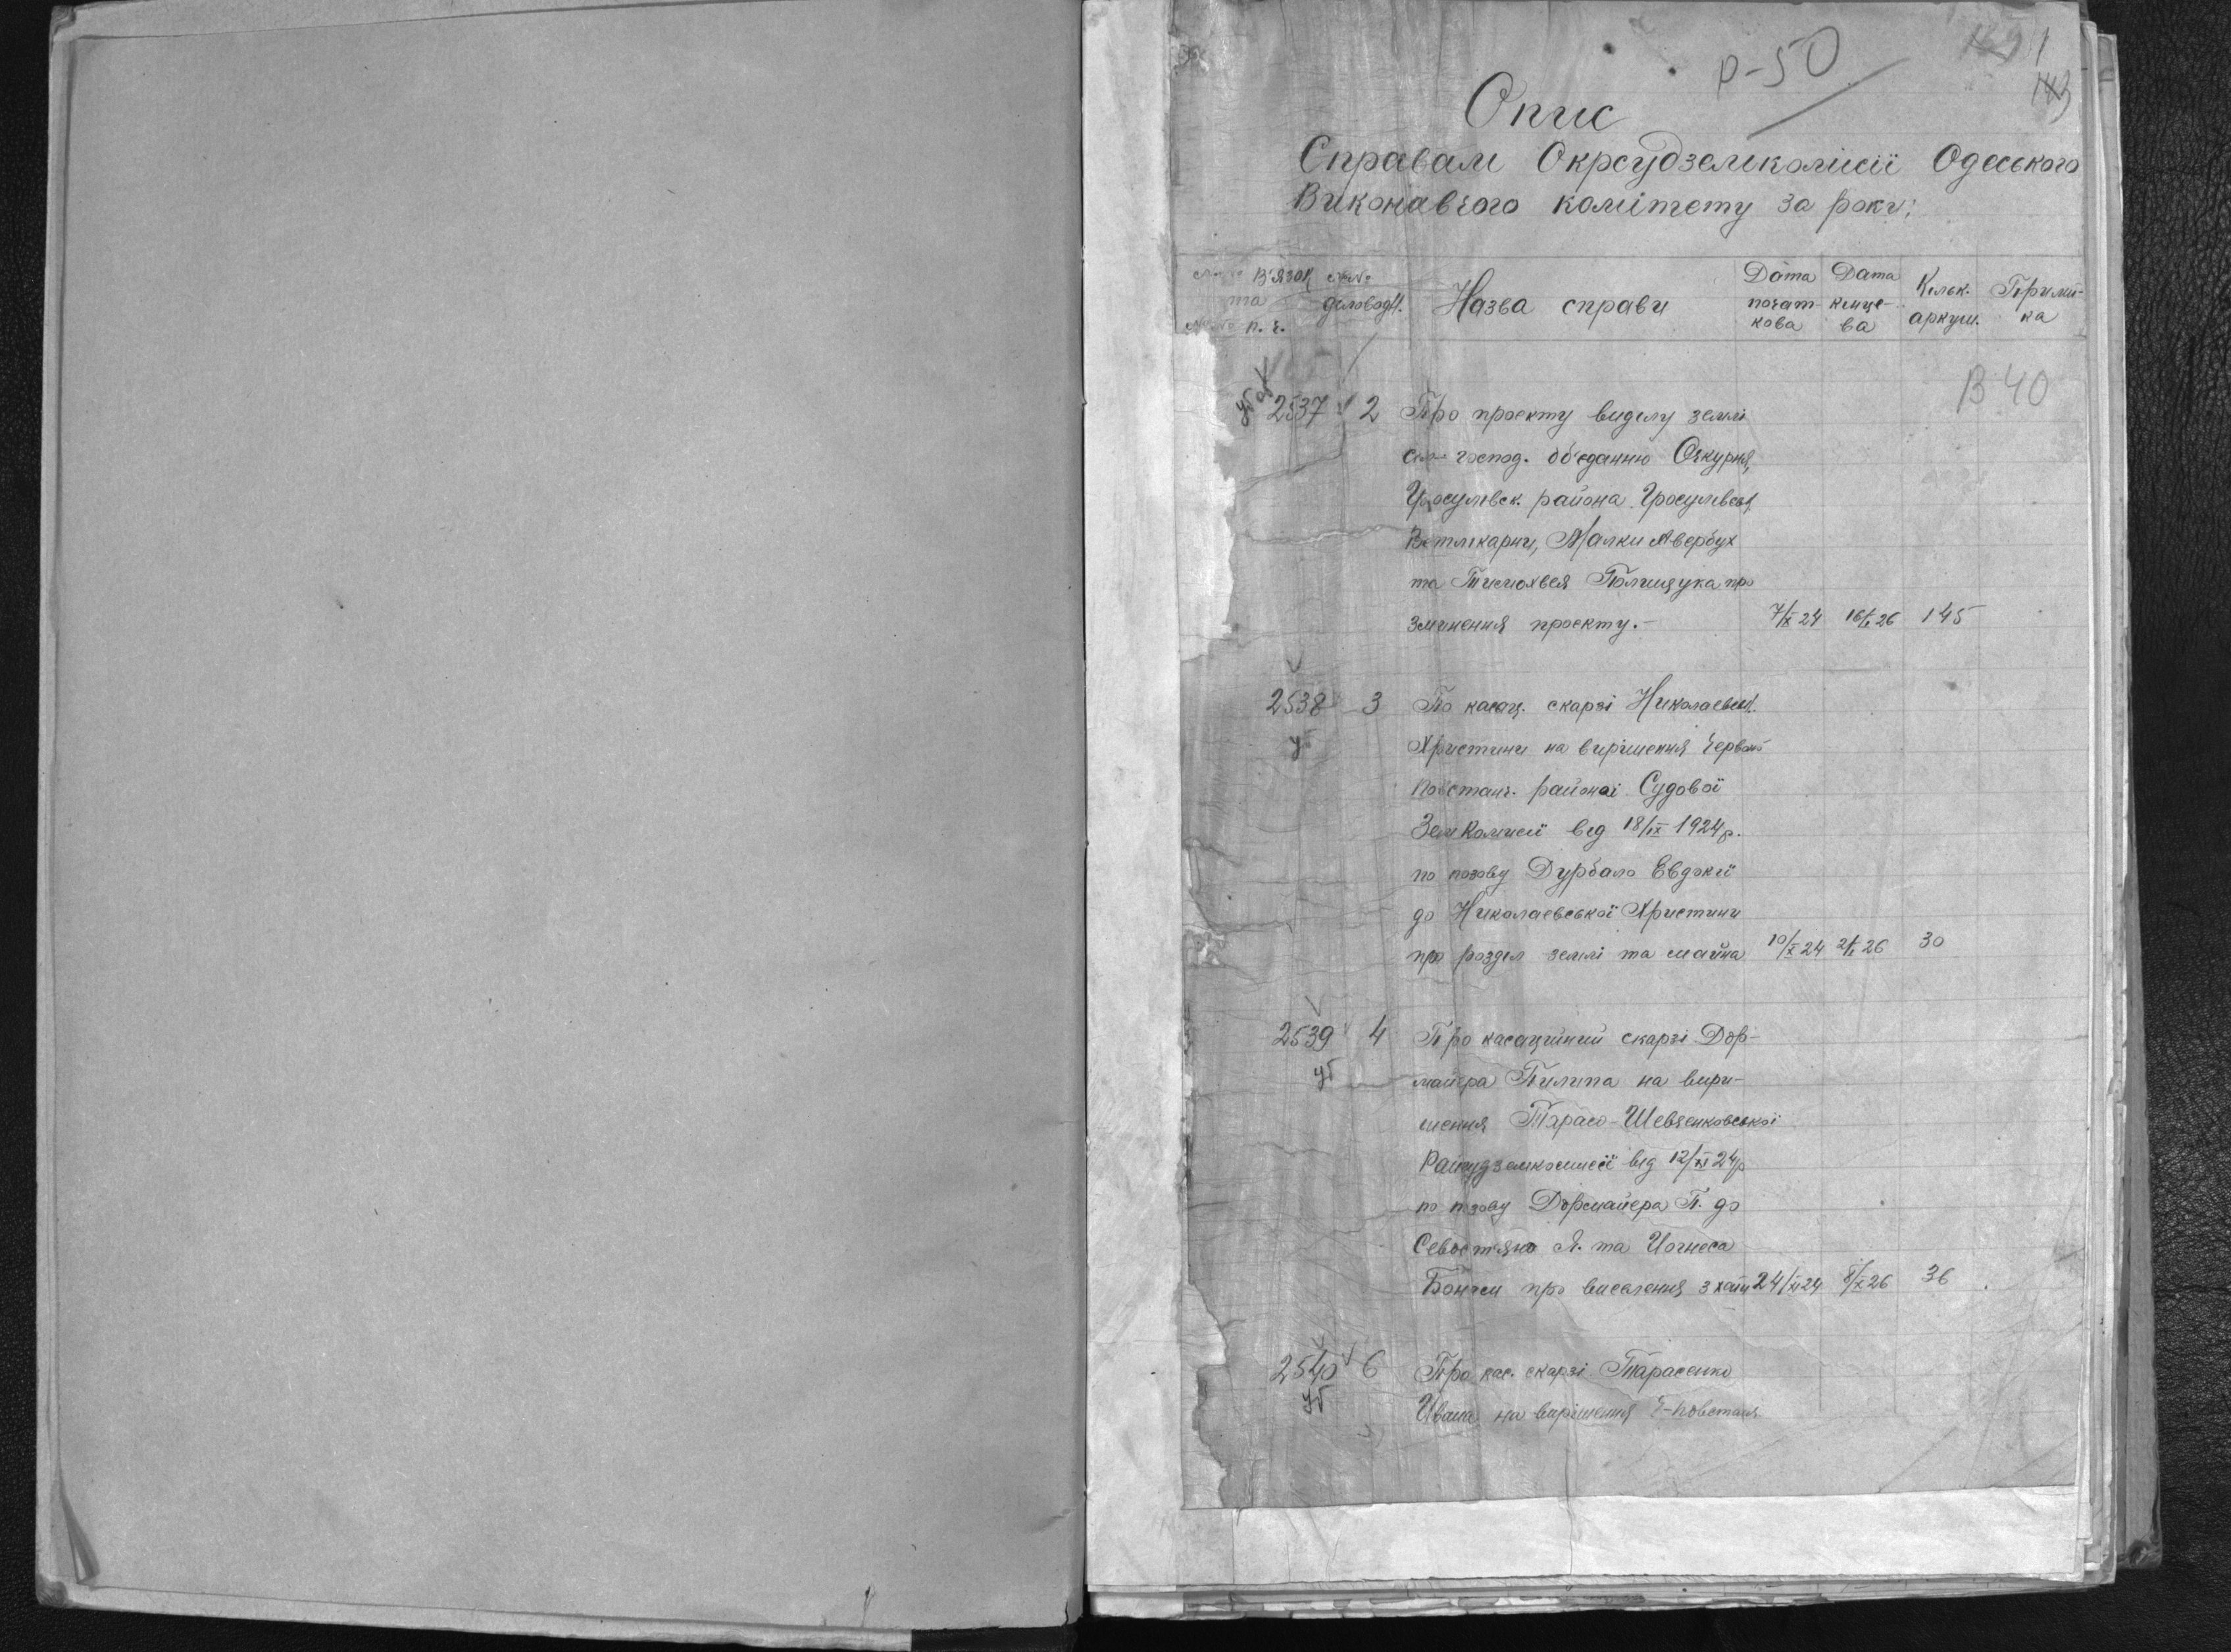 Р-50
1
143
Опис
Справам Окрсудземкомісії Одеського
Виконавчого комітету за роки:
№№ В'язок №№ Назва справи Дата Дата Кільк. Примі-
та діловодч. почат- кінце- аркуш. ка
№№ п. ч. кова ва
В 40
2537 2 Про проекту виделу землі
госпом. об'єданню Очкурня,
Гросулівск. района Гросулівськ.
Ветлікарні, Малки Авербух
та Тимохвея Поліщука про
змінення проекту.- 7/X 24 16/I 26 145
2538 3 По касац. скарзі Николаевськ.
уб Христини на вирішення Червоно
Повстанч. районої Судової
Земкомисії від 18/IX 1924р.
по позову Дурбало Евдокії
до Николаевської Христини
про роздел землі та майна 10/X 24 2/I 26 30
2539 4 Про касаційний скарзі Дор-
уб майера Пилипа на вири-
шення Тарасо-Шевченковської
Райсудземкомисії від 12/XI 24р
по позову Дормайера П. до
Севостяно Я. та Иогнеса
про виселення з хати 24/XI 24 8/X 26 36
2540 6 Про кас. скарзі Тарасенко
уб Ивана на вирішення Ч-повстанч.